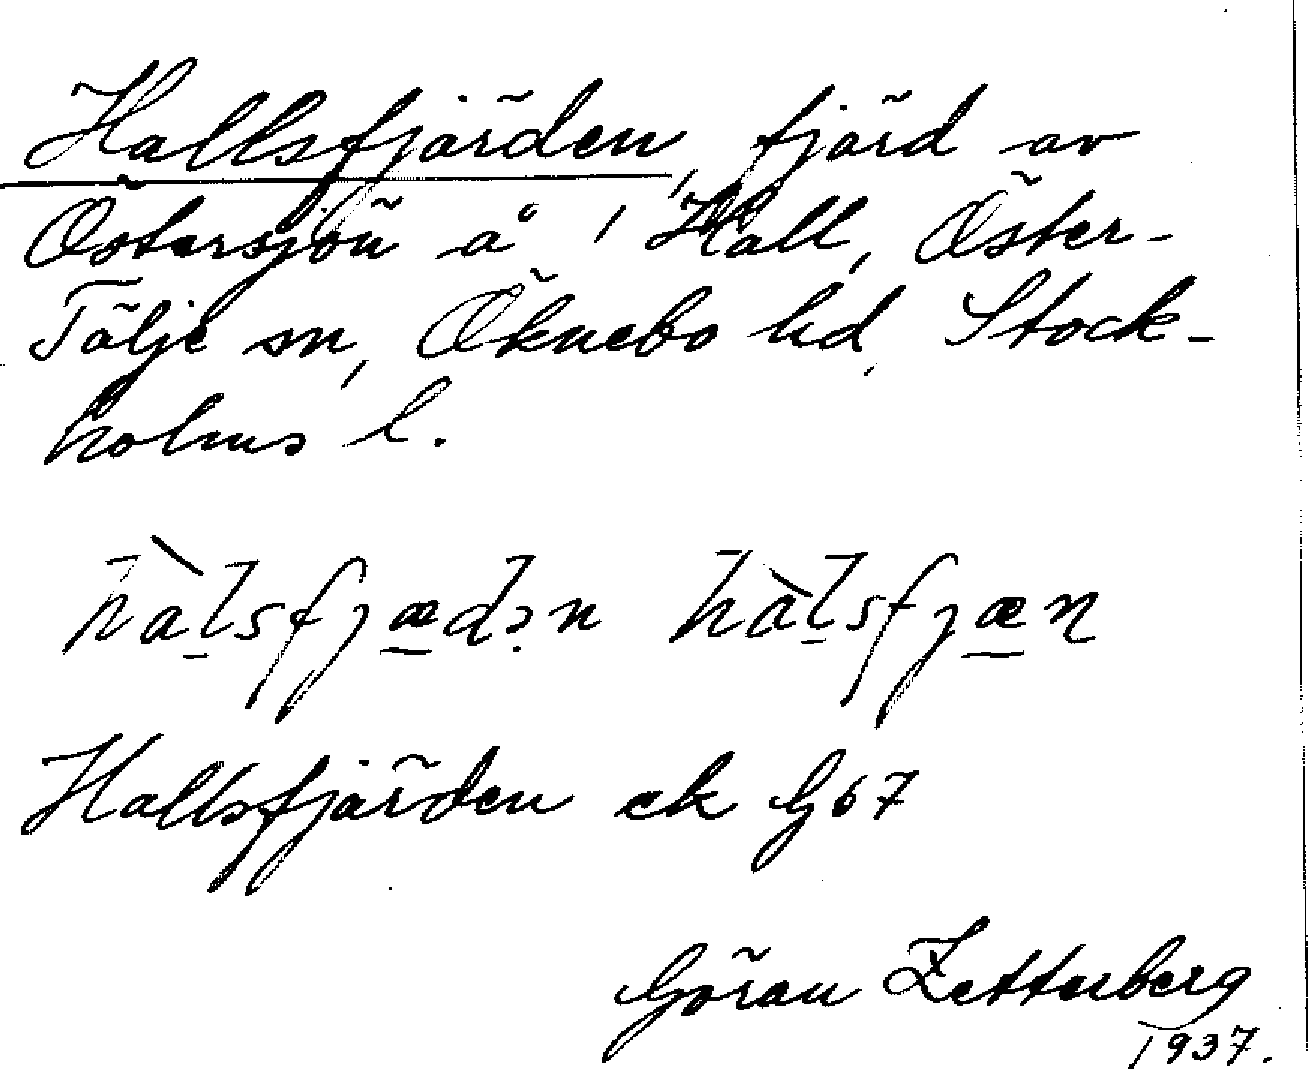 Hallsfjärden, fjärd av
Östersjön å, Hall, Öster-
Tälje sn, Öknebo hd, Stock-
holms l.
hàl̠sfjæ̠dən hàl̠sfjæ̠n
Hallsfjärden ek G67
Göran Zetterberg
1937.